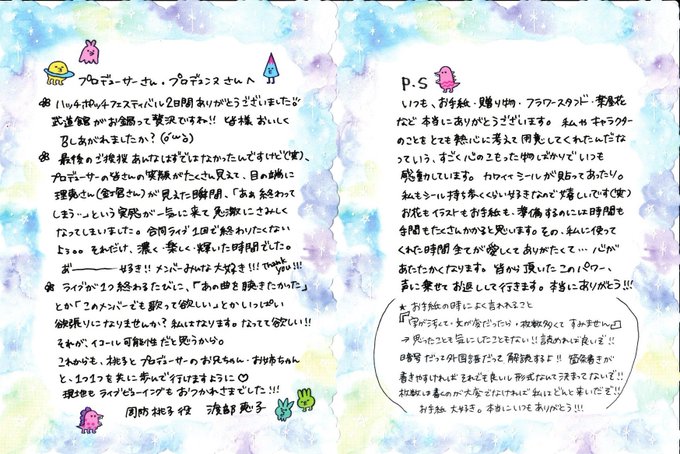 プロデューサーさん・プロデュンヌさんへ
ハッチポッチフェスティバル2日間ありがとうございました!!
武道館がお鍋って贅沢ですね!! 皆様おいしく
召しあがれましたか?(óωò)
最後のご挨拶あんなはずじゃなかったんですけど(笑)、
プロデューサーの皆さんの笑顔がたくさん見えて、目の端に
理恵さん(釘宮さん)が見えた瞬間、「あぁ終わって
しまう…」という実感が一気に来て急激にさみしく
なってしまいました。合同ライブ1回で終わりたくない
よぅ。。それだけ、濃く・楽しく・輝いた時間でした。
あ゛ーーー好き!! メンバーみんな大好き!!! Thank you!!!
ライブが1つ終わるたびに、「あの曲も聴きたかった」
とか「このメンバーでも歌って欲しい」とかいっぱい
欲張りになりませんか?私はなります。なってて欲しい!!
それが、イコール可能性だと思うから。
これからも、桃子とプロデューサーのお兄ちゃん・お姉ちゃん
と、1つ1つを共に歩んで行けますように♡
現地もライブビューイングもおつかれさまでした!!!
周防桃子役 渡部恵子
P.S
いつも、お手紙・贈り物・フラワースタンド・楽屋花
など本当にありがとうございます。私やキャラクター
のことをとても熱心に考えて用意してくれたんだな
っていう、すごく心のこもった物ばかりでいつも
感動しています。カワイイシールが貼ってあったり。
私もシール持ち歩くくらい好きなので嬉しいです(笑)
お花もイラストもお手紙も、準備するのには時間も
手間もたくさんかかると思います。その、私に使って
くれた時間全てが愛しくてありがたくて…心が
あたたかくなります。皆から頂いたこのパワー、
声に乗せてお返しして行きます。本当にありがとう!!!
★ お手紙の時によく言われること
『字が汚くて・文が変だったら・枚数多くてすみません』
→思ったことも気にしたこともない!! 読めれば良いぞ!!
暗号だって外国語だって解読するよ!! 箇条書きが
書きやすければそれでも良いし形式なんて決まってないぞ!!
枚数は書くのが大変でなければ私はどんと来いだぞ!!
お手紙大好き。本当にいつもありがとう!!!